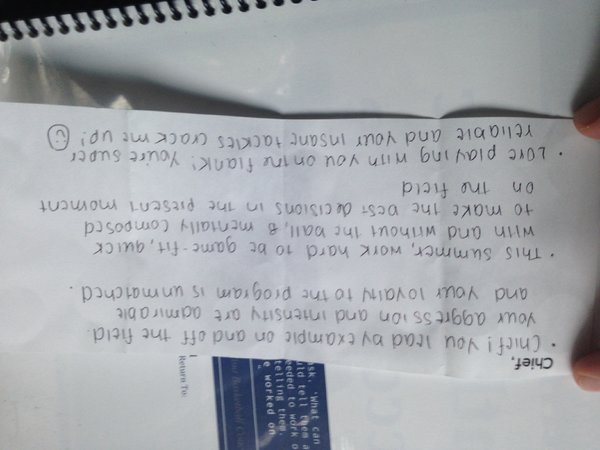 Chief,
• Chief! You lead by example on and off the field.
your aggression and intensity are admirable
and your loyalty to the program is unmatched.
• This summer, work hard to be game-fit, quick
with and without the ball, & mentally composed
to make the best decisions in the present moment
on the field
• Love playing with you on the flank! You're super
reliable and your insane tackles crack me up!
Return To:
Basketball
'What can
tell them
to work
telling them.
worked on